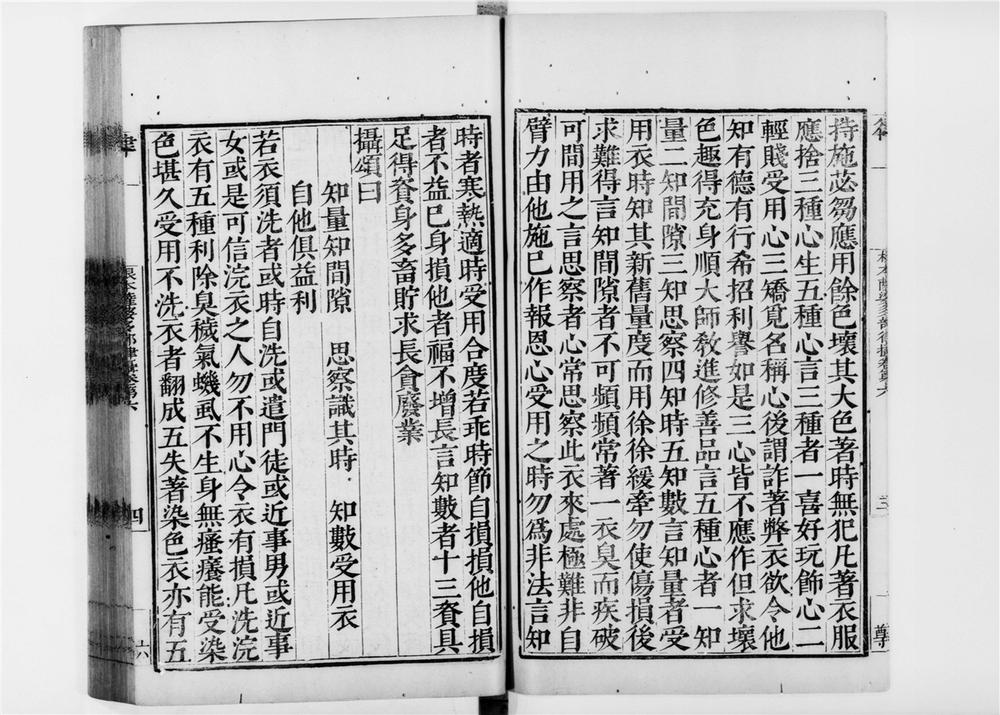 持施苾芻應用餘色壞其大色著時無犯凡著衣服
應捨三種心生五種心言三種者一喜好玩飾心二
輕賤受用心三矯覓名稱心後謂詐著弊衣欲令他
知有德有行希招利譽如是三心皆不應作但求壞
色趣得充身順大師教進修善品言五種心者一知
量二知間隙三知思察四知時五知數言知量者受
用衣時知其新舊量度而用徐徐緩牽勿使傷損後
求難得言知間隙者不可頻頻常著一衣臭而疾破
可間用之言思察者心常思察此衣來處極難非自
臂力由他施已作報恩心受用之時勿為非法言知
三
尊
時者寒熱適時受用合度若乖時節自損損他自損
者不益已身損他者福不增長言知數者十三資具
足得資身多畜貯求長貪廢業
攝頌曰
知量知間隙 思察識其時 知數受用衣
自他俱益利
若衣須洗者或時自洗或遣門徒或近事男或近事
女或是可信浣衣之人勿不用心令衣有損凡洗浣
衣有五種利除臭穢氣蟣虱不生身無瘙癢能受染
色堪久受用不洗衣者翻成五失著染色衣亦有五
律
四
六